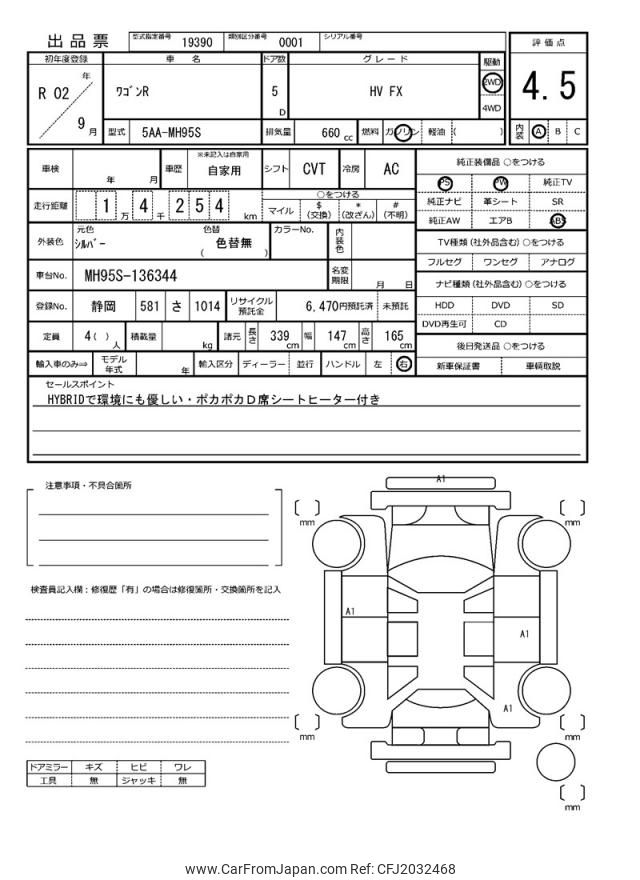 出品票 型式指定番号 19390 類別区分番号 0001 シリアル番号
評価点
4.5
内装 A B C
初年度登録 車名 ドア数 グレード 駆動
R 02 年 9 月 ワゴンR 5 D HV FX 2WD 4WD
型式 5AA-MH95S 排気量 660 cc 燃料 ガソリン 軽油 ( )
車検 年 月 車歴 ※未記入は自家用 自家用 シフト CVT 冷房 AC
走行距離 1 万 4 千 2 5 4 km ○をつける
マイル $ (交換) * (改ざん) # (不明)
外装色 元色 シルバー 色替 色替無 ( ) カラーNo. 内装色
車台No. MH95S-136344 名変期限 月 日
登録No. 静岡 581 さ 1014 リサイクル預託金 6,470円預託済 未預託
定員 4 ( ) 人 積載量 kg 諸元 長さ 339 cm 幅 147 cm 高さ 165 cm
輸入車のみ⇒ モデル年式 年 輸入区分 ディーラー 並行 ハンドル 左 右
純正装備品 ○をつける
PS PW 純正TV
純正ナビ 革シート SR
純正AW エアB ABS
TV種類 (社外品含む) ○をつける
フルセグ ワンセグ アナログ
ナビ種類 (社外品含む) ○をつける
HDD DVD SD
DVD再生可 CD
後日発送品 ○をつける
新車保証書 車輌取説
セールスポイント
HYBRIDで環境にも優しい・ポカポカD席シートヒーター付き
注意事項・不具合箇所
検査員記入欄：修復歴「有」の場合は修復箇所・交換箇所を記入
A1
mm
mm
A1
A1
A1
mm
mm
mm
ドアミラー キズ ヒビ ワレ
工具 無 ジャッキ 無
www.CarFromJapan.com Ref: CFJ2032468